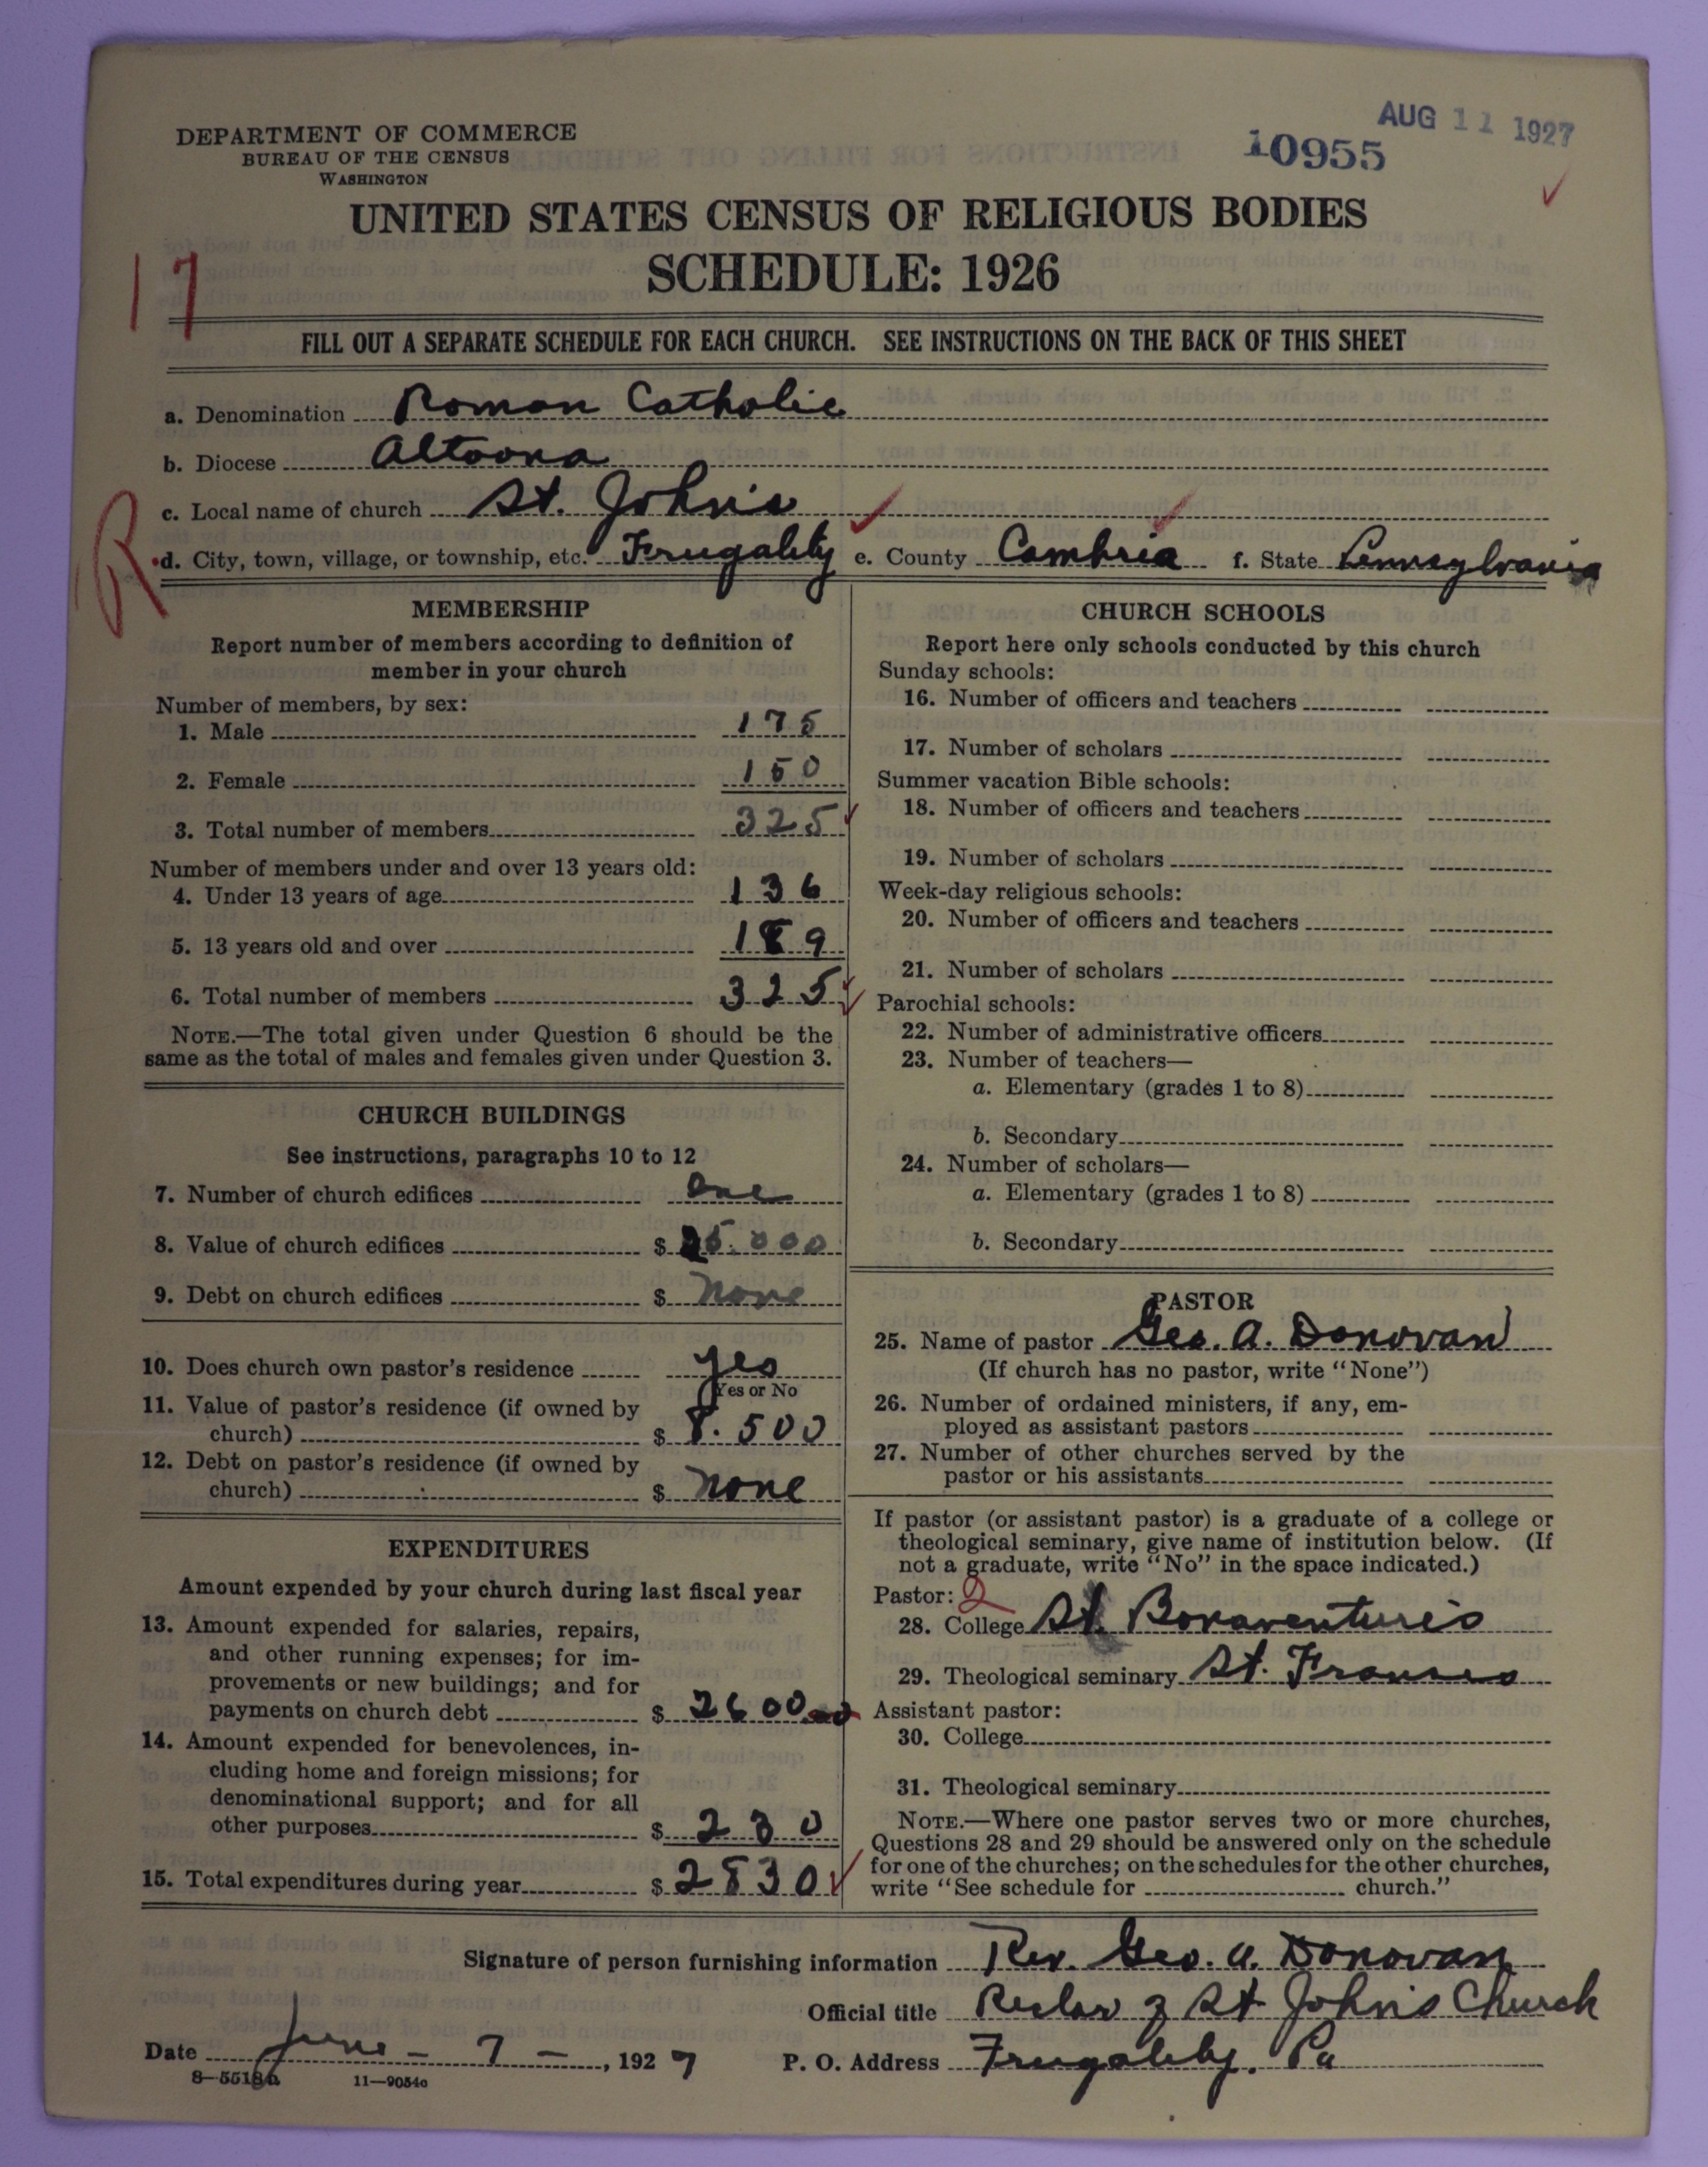 DEPARTMENT OF COMMERCE
BUREAU OF THE CENSUS
WASHINGTON
AUG 11 1927
10955
UNITED STATES CENSUS OF RELIGIOUS BODIES
SCHEDULE: 1926
17
FILL OUT A SEPARATE SCHEDULE FOR EACH CHURCH. SEE INSTRUCTIONS ON THE BACK OF THIS SHEET
a. Denomination Roman Catholic
b. Diocese Altoona
c. Local name of church St. John's
R
d. City, town, village, or township, etc. Frugality e. County Cambria f. State Pennsylvania
MEMBERSHIP
Report number of members according to definition of
member in your church
Number of members, by sex:
1. Male 175
2. Female 150
3. Total number of members 325
Number of members under and over 13 years old:
4. Under 13 years of age 136
5. 13 years old and over 189
6. Total number of members 325
NOTE.—The total given under Question 6 should be the
same as the total of males and females given under Question 3.
CHURCH BUILDINGS
See instructions, paragraphs 10 to 12
7. Number of church edifices One
8. Value of church edifices $
9. Debt on church edifices $ None
10. Does church own pastor's residence yes
Yes or No
11. Value of pastor's residence (if owned by
church) $ 8.500
12. Debt on pastor's residence (if owned by
church) $ None
EXPENDITURES
Amount expended by your church during last fiscal year
13. Amount expended for salaries, repairs,
and other running expenses; for im-
provements or new buildings; and for
payments on church debt $ 2600.00
14. Amount expended for benevolences, in-
cluding home and foreign missions; for
denominational support; and for all
other purposes $ 230
15. Total expenditures during year $ 2830
CHURCH SCHOOLS
Report here only schools conducted by this church
Sunday schools:
16. Number of officers and teachers
17. Number of scholars
Summer vacation Bible schools:
18. Number of officers and teachers
19. Number of scholars
Week-day religious schools:
20. Number of officers and teachers
21. Number of scholars
Parochial schools:
22. Number of administrative officers
23. Number of teachers—
a. Elementary (grades 1 to 8)
b. Secondary
24. Number of scholars—
a. Elementary (grades 1 to 8)
b. Secondary
PASTOR
25. Name of pastor Geo. A. Donovan
(If church has no pastor, write "None")
26. Number of ordained ministers, if any, em-
ployed as assistant pastors
27. Number of other churches served by the
pastor or his assistants
If pastor (or assistant pastor) is a graduate of a college or
theological seminary, give name of institution below. (If
not a graduate, write "No" in the space indicated.)
Pastor: 2
28. College St. Bonaventure's
29. Theological seminary St. Francis
Assistant pastor:
30. College
31. Theological seminary
NOTE.—Where one pastor serves two or more churches,
Questions 28 and 29 should be answered only on the schedule
for one of the churches; on the schedules for the other churches,
write "See schedule for church."
Signature of person furnishing information Rev. Geo. A. Donovan
Official title Rector of St John's Church
Date June - 7 - , 1927 P. O. Address Frugality. Pa
8-5518a 11—9054c